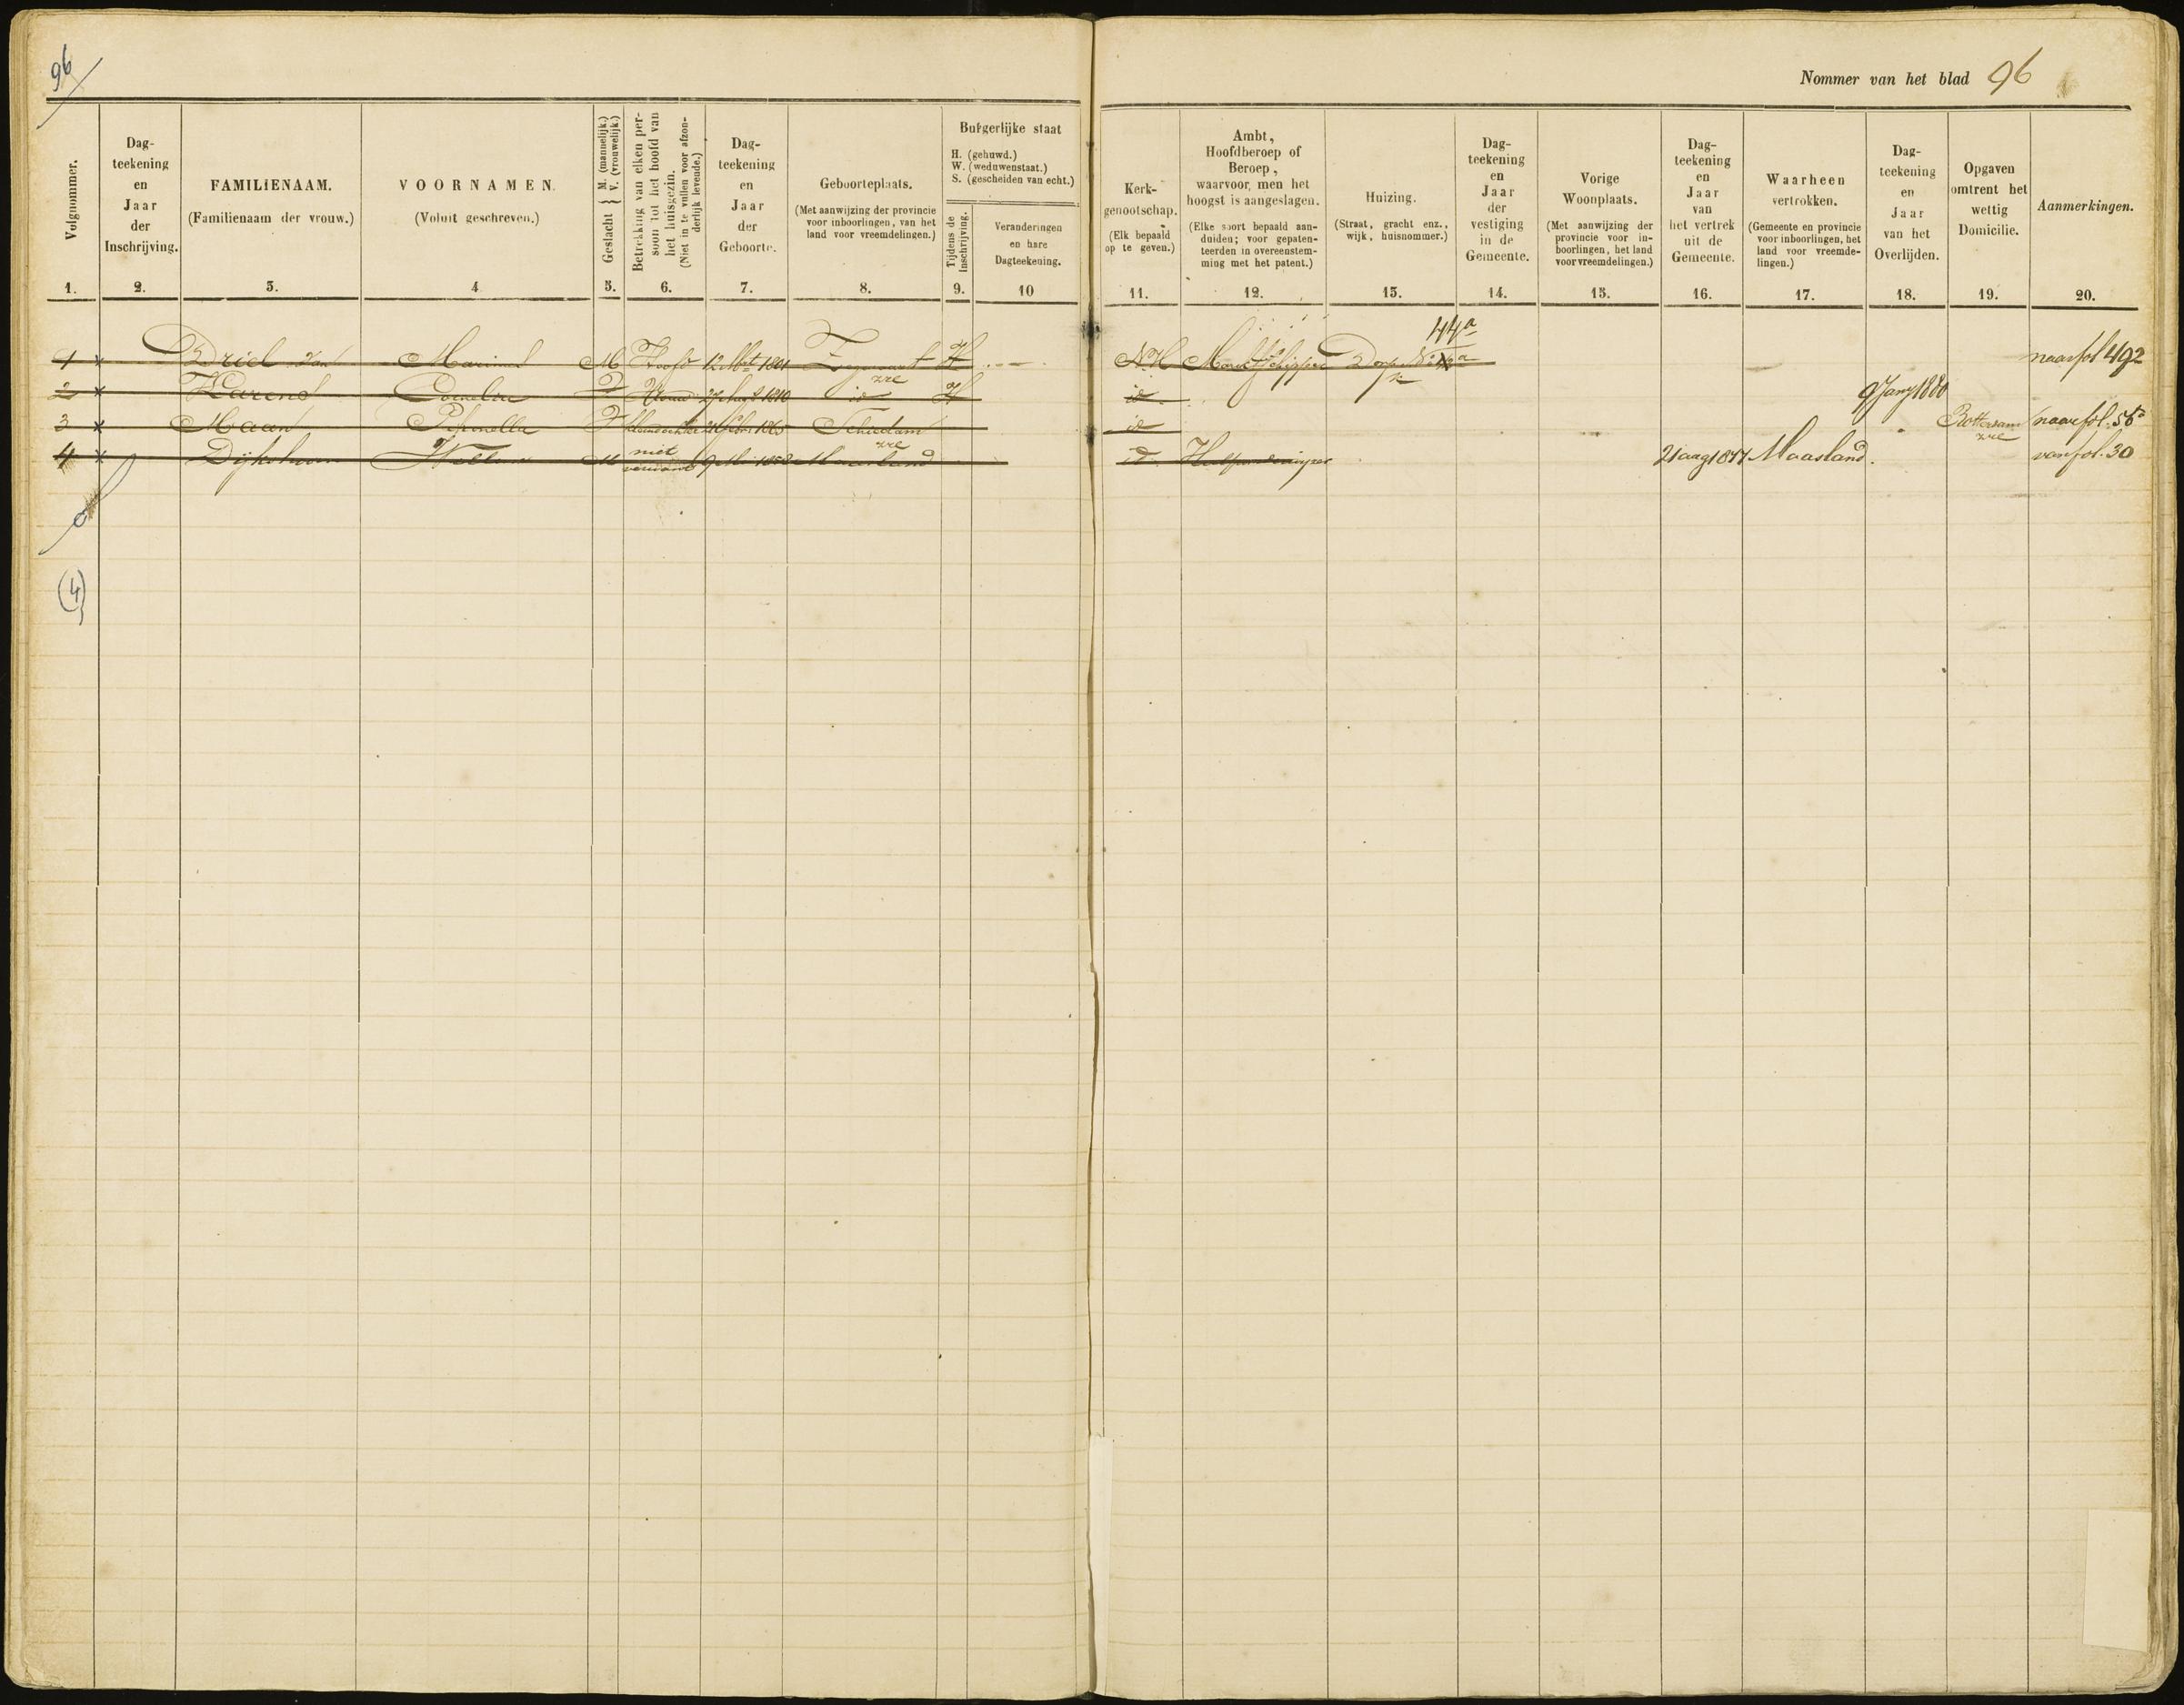 96
Nommer van het blad 96
Volgnommer.
Dag-
teekening
en
Jaar
der
Inschrijving.
FAMILIENAAM.
(Familienaam der vrouw.)
VOORNAMEN.
(Voluit geschreven.)
Geslacht { M. (mannelijk.) V. (vrouwelijk.)
Betrekking van elken per-
soon tot het hoofd van
het huisgezin.
(Niet in te vullen voor afzon-
derlijk levende.)
Dag-
teekening
en
Jaar
der
Geboorte.
Geboorteplaats.
(Met aanwijzing der provincie
voor inboorlingen, van het
land voor vreemdelingen.)
Burgerlijke staat
H. (gehuwd.)
W. (weduwenstaat.)
S. (gescheiden van echt.)
Tijdens de
Inschrijving.
Veranderingen
en hare
Dagteekening.
Kerk-
genootschap.
(Elk bepaald
op te geven.)
Ambt,
Hoofdberoep of
Beroep,
waarvoor men het
hoogst is aangeslagen.
(Elke soort bepaald aan-
duiden; voor gepaten-
teerden in overeenstem-
ming met het patent.)
Huizing.
(Straat, gracht enz.,
wijk, huisnommer.)
Dag-
teekening
en
Jaar
der
vestiging
in de
Gemeente.
Vorige
Woonplaats.
(Met aanwijzing der
provincie voor in-
boorlingen, het land
voor vreemdelingen.)
Dag-
teekening
en
Jaar
van
het vertrek
uit de
Gemeente.
Waarheen
vertrokken.
(Gemeente en provincie
voor inboorlingen, het
land voor vreemde-
lingen.)
Dag-
teekening
en
Jaar
van het
Overlijden.
Opgaven
omtrent het
wettig
Domicilie.
Aanmerkingen.
1. 2. 3. 4 5. 6. 7. 8. 9. 10 11. 12. 13. 14. 15. 16. 17. 18. 19. 20.
44a
1 x Driel van Marinus M Hoofd 1801 H NH Marktschipper Dorp naar fol 492
zre
2 x Cornelia V Vrouw 1810 id H id 9 Jany 1880
3 x Maan V kleindochter 1865 Schiedam id Rotterdam naar fol. 58
zre zre
4 x Dijkshoorn Willem M niet verwant 1858 Maasland id 21 aug 1877 Maasland. van fol. 30
(4)